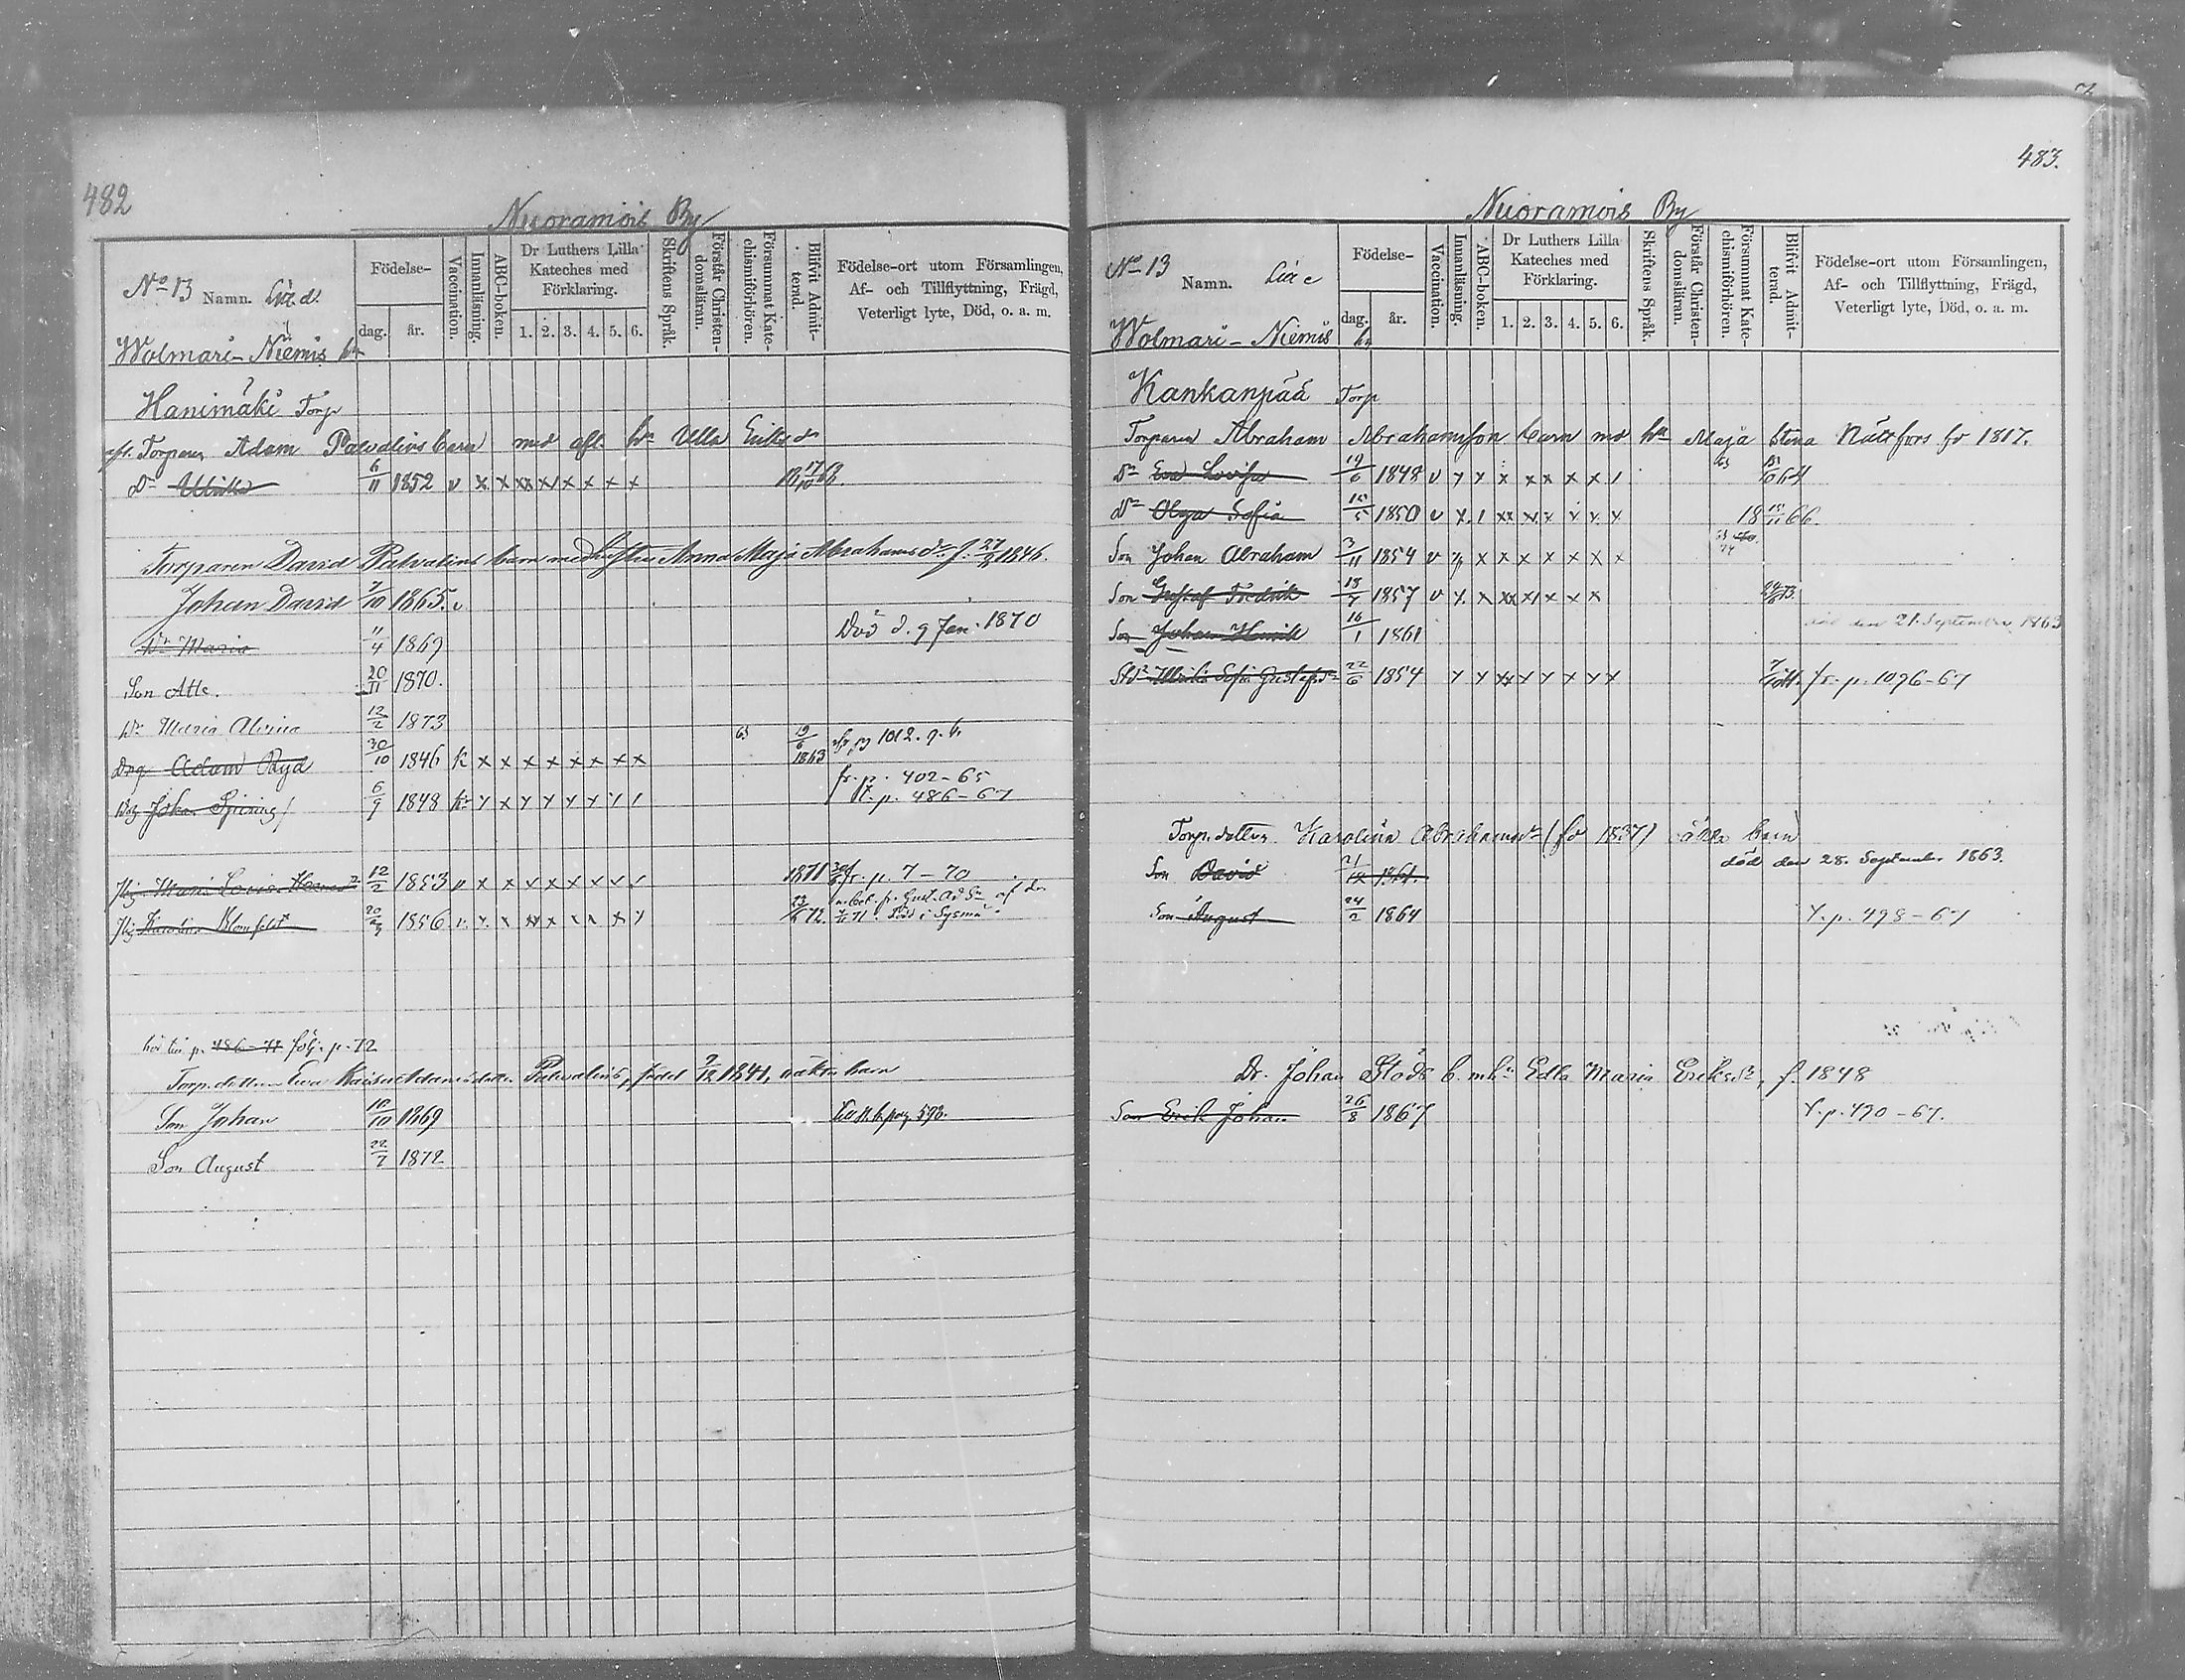 482
Nuoramois By
No 13 Namn. Lit d.
Wolmari-Niemis hn
Födelse-
dag. år.
Vaccination.
Innanläsning.
ABC-boken.
Dr Luthers Lilla
Kateches med
Förklaring.
1. 2. 3. 4. 5. 6.
Skriftens Språk.
Förstår Christen-
domsläran.
Försummat Kate-
chismiförhören.
Blifvit Admit-
terad.
Födelse-ort utom Församlingen,
Af- och Tillflyttning, Frägd,
Veterligt lyte, Död, o. a. m.
Hanimäki Torp
afl. Torparen Adam Palvalins barn med afl. hu Ulla Eriks dr
Dr Ulrika 6/11 1852 v x x xx x x x x x
Torparen David Palvalins barn med hustru Anna Maja Abrahams dr f. 1846.
Johan David 7/10 1865. v
Dr Maria 11/4 1869 Död d. 9 Jan. 1870
Son Atte. 20/11 1870.
Dr Maria Alvina 12/2 1873
Drg Adam Ryd 30/10 1846 k x x x x x x x x 63 19/6 1863 pg 1012. g. b.
fr. p. 402-65
Drg Johan Spiring 6/9 1848 t. p. 486-67
Pig Maria Lovisa 12/2 1853 v x x v x x v v v 1871 fr. p. 7-70
Pig Karolin Blomfelt 1856 23/6 72. i Sysmä
p. 486-71 följ. p. 72
Torp. dottren Eva Kaisa Adamsdotter Palvalins, född 9/12 1841, oäkta barn
Son Johan 10/10 1869 pag. 593.
Son August 22/7 1872
483.
Nuoramois By
No 13 Namn. Lit e
Wolmari-Niemis hn
Födelse-
dag. år.
Vaccination.
Innanläsning.
ABC-boken.
Dr Luthers Lilla
Kateches med
Förklaring.
1. 2. 3. 4. 5. 6.
Skriftens Språk.
Förstår Christen-
domsläran.
Försummat Kate-
chismiförhören.
Blifvit Admit-
terad.
Födelse-ort utom Församlingen,
Af- och Tillflyttning, Frägd,
Veterligt lyte, Död, o. a. m.
Kankanpää Torp
Torparen Abraham Abrahamsson barn med hu Maja Stina Nättfors fö 1817.
Dr Eva Lovisa 19/6 1848 v 63 64
Dr Olga Sofia 15/5 1850 v 18 15/11 66.
Son Johan Abraham 3/11 1854 v x x x x x x x
Son Gustaf Fredrik 18/7 1857 v x. x xx x x x x 73.
Son Johan Henrik 16/1 1861 död den 21. September 1863
Std Ulrika Sofia Gustafsdr 22/6 1854 fr. p. 1096-67
Torp. dottren Karolina Abrahamsdr (fö 1837) oäkta barn
Son David 21/12 1861. död den 28. September 1863.
Son August 24/2 1864 t. p. 498-67
Dr. Johan Stöds b. m. hu Edla Maria Eriksdr, f. 1848
Son Erik Johan 26/8 1867 t. p. 490-67.